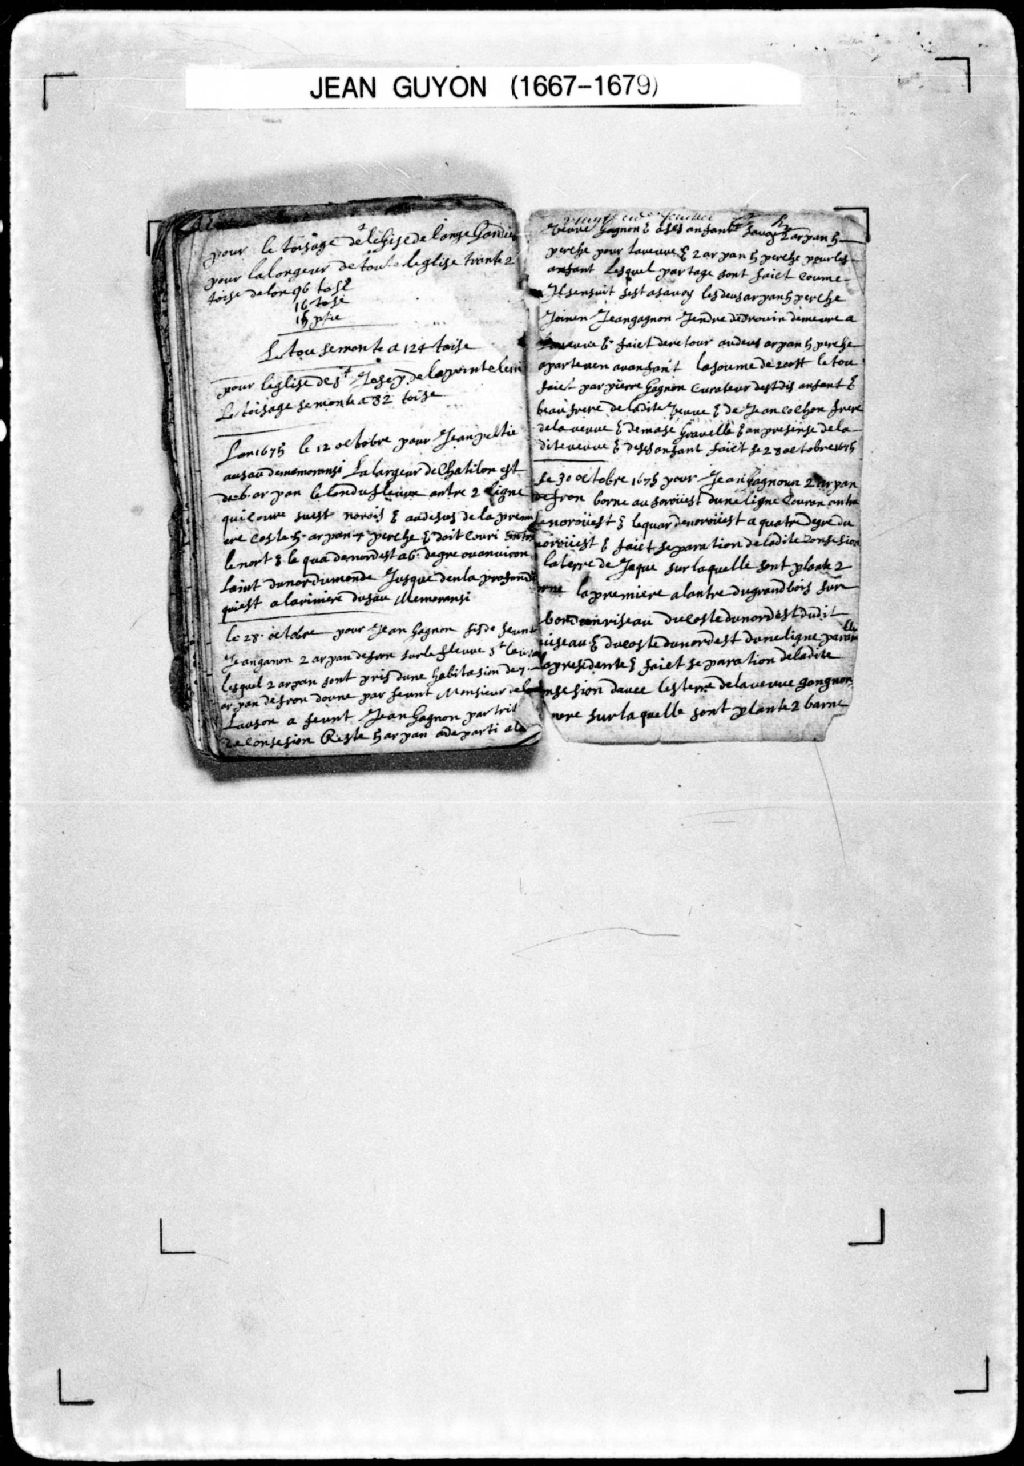 JEAN GUYON (1667-1679)
pour le toisage de léglise de lange Gardien
pour la longeur de toute leglise trante 2
toise de lon 96 toise
16 toise
15 pie
Le tou se monte a 124 toise
pour leglise de st Josep de la pointe leui
Le toisage se monte a 82 toise
Lan 1675 le 12 octobre pour Jean peltie
au sau de memoransi La largeur de Chatilon est
de 6 arpan le lon du fleuue antre 2 ligne
qui coure suest norois & au desus de la premi
ere coste 5 arpan 4 perche & doit couri
le nort & le qua de nordest a 6 degre ou anuiron
du nor du monde Jusque de la profond
qui est a la riuiere du sau Memoransi
le 28 octobre pour Jean Gagnon fis de feunt
Jean ganon 2 arpan de fron sur le fleuue st
lesquel 2 arpan sont pris dune habitasion de 7
arpan de fron donne par feunt Monsieur de la
Lauson a feunt Jean Gagnon par trit
de consesion Reste 5 arpan a departi a la
veuue gagnon & a ses anfant sauoir 2 arpan 5
perche pour la veuue & 2 arpan 5 perche pour les
anfant lesquel partage sont faict coume
Il sensuit sest a sauoy les deus arpan 5 perche
Joinan Jean gagnon Jendre de drouin demeure a
la veuue & faict de retour au deus arpan 5 perche
apartenan au anfant la soume de 200 tt le tou
faict par pierre Gagnon Curateur desdis anfant &
beau frere de ladite veuue & de Jean Cochon frere
de la veuue & de mase Grauelle & an presinse de la
dite veuue & de ses anfant faict le 28 octobre 1675
le 30 octobre 1675 pour Jean gagnon 2 arpan
de fron borne au sorouest dune ligne couran antre
le norouest & le quar de norouest a quatre degre du
norouest & faict separation de ladite consesion
la terre de Jaque sur laquelle sont plante 2
borne la premiere a lantre du grand bois sur
bord dun riseau du coste du nordest dudit
riseau & du coste du nordest dune ligne paralle
la presidente & faict separation de ladite
consesion dauec les terre de la veuue gangnon
mere sur laquelle sont plante 2 barne